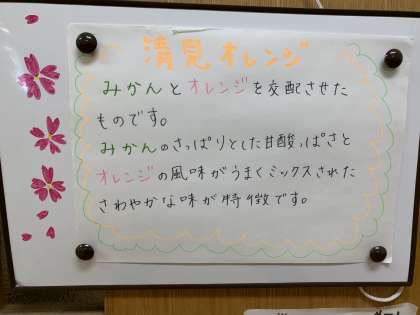 清見オレンジ
みかんとオレンジを交配させた
ものです。
みかんのさっぱりとした甘酸っぱさと
オレンジの風味がうまくミックスされた
さわやかな味が特徴です。